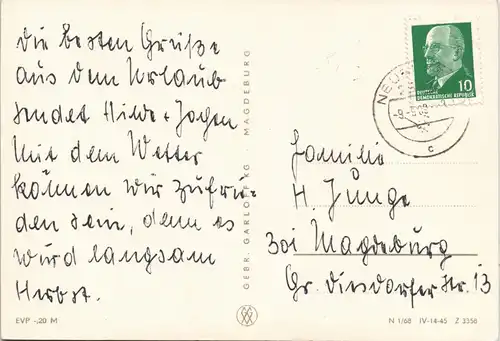 Die besten Grüße
aus dem Urlaub
sendet Hilde + Jochen
Mit dem Wetter
können wir zufrie-
den sein, denn es
wird langsam
Herbst.
EVP -,20 M
GEBR. GARLOFF KG. · MAGDEBURG
10
DEUTSCHE
DEMOKRATISCHE REPUBLIK
NEU
c
Familie
H. Junge
301 Magdeburg
Gr. Diesdorfer Str. 13
N 1/68 IV-14-45 Z 3358